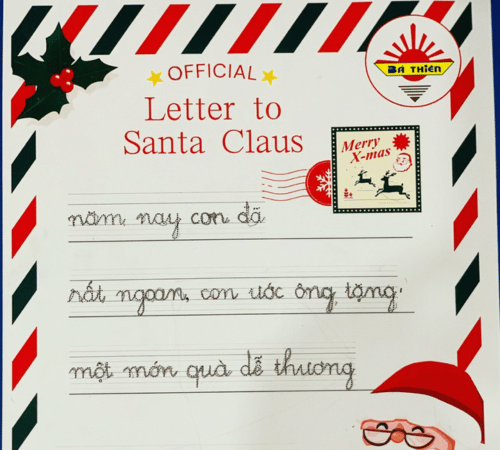 OFFICIAL
BÁ THIÊN
Letter to
Santa Claus
Merry
X-mas
năm nay con đã
rất ngoan, con ước ông tặng
một món quà dễ thương